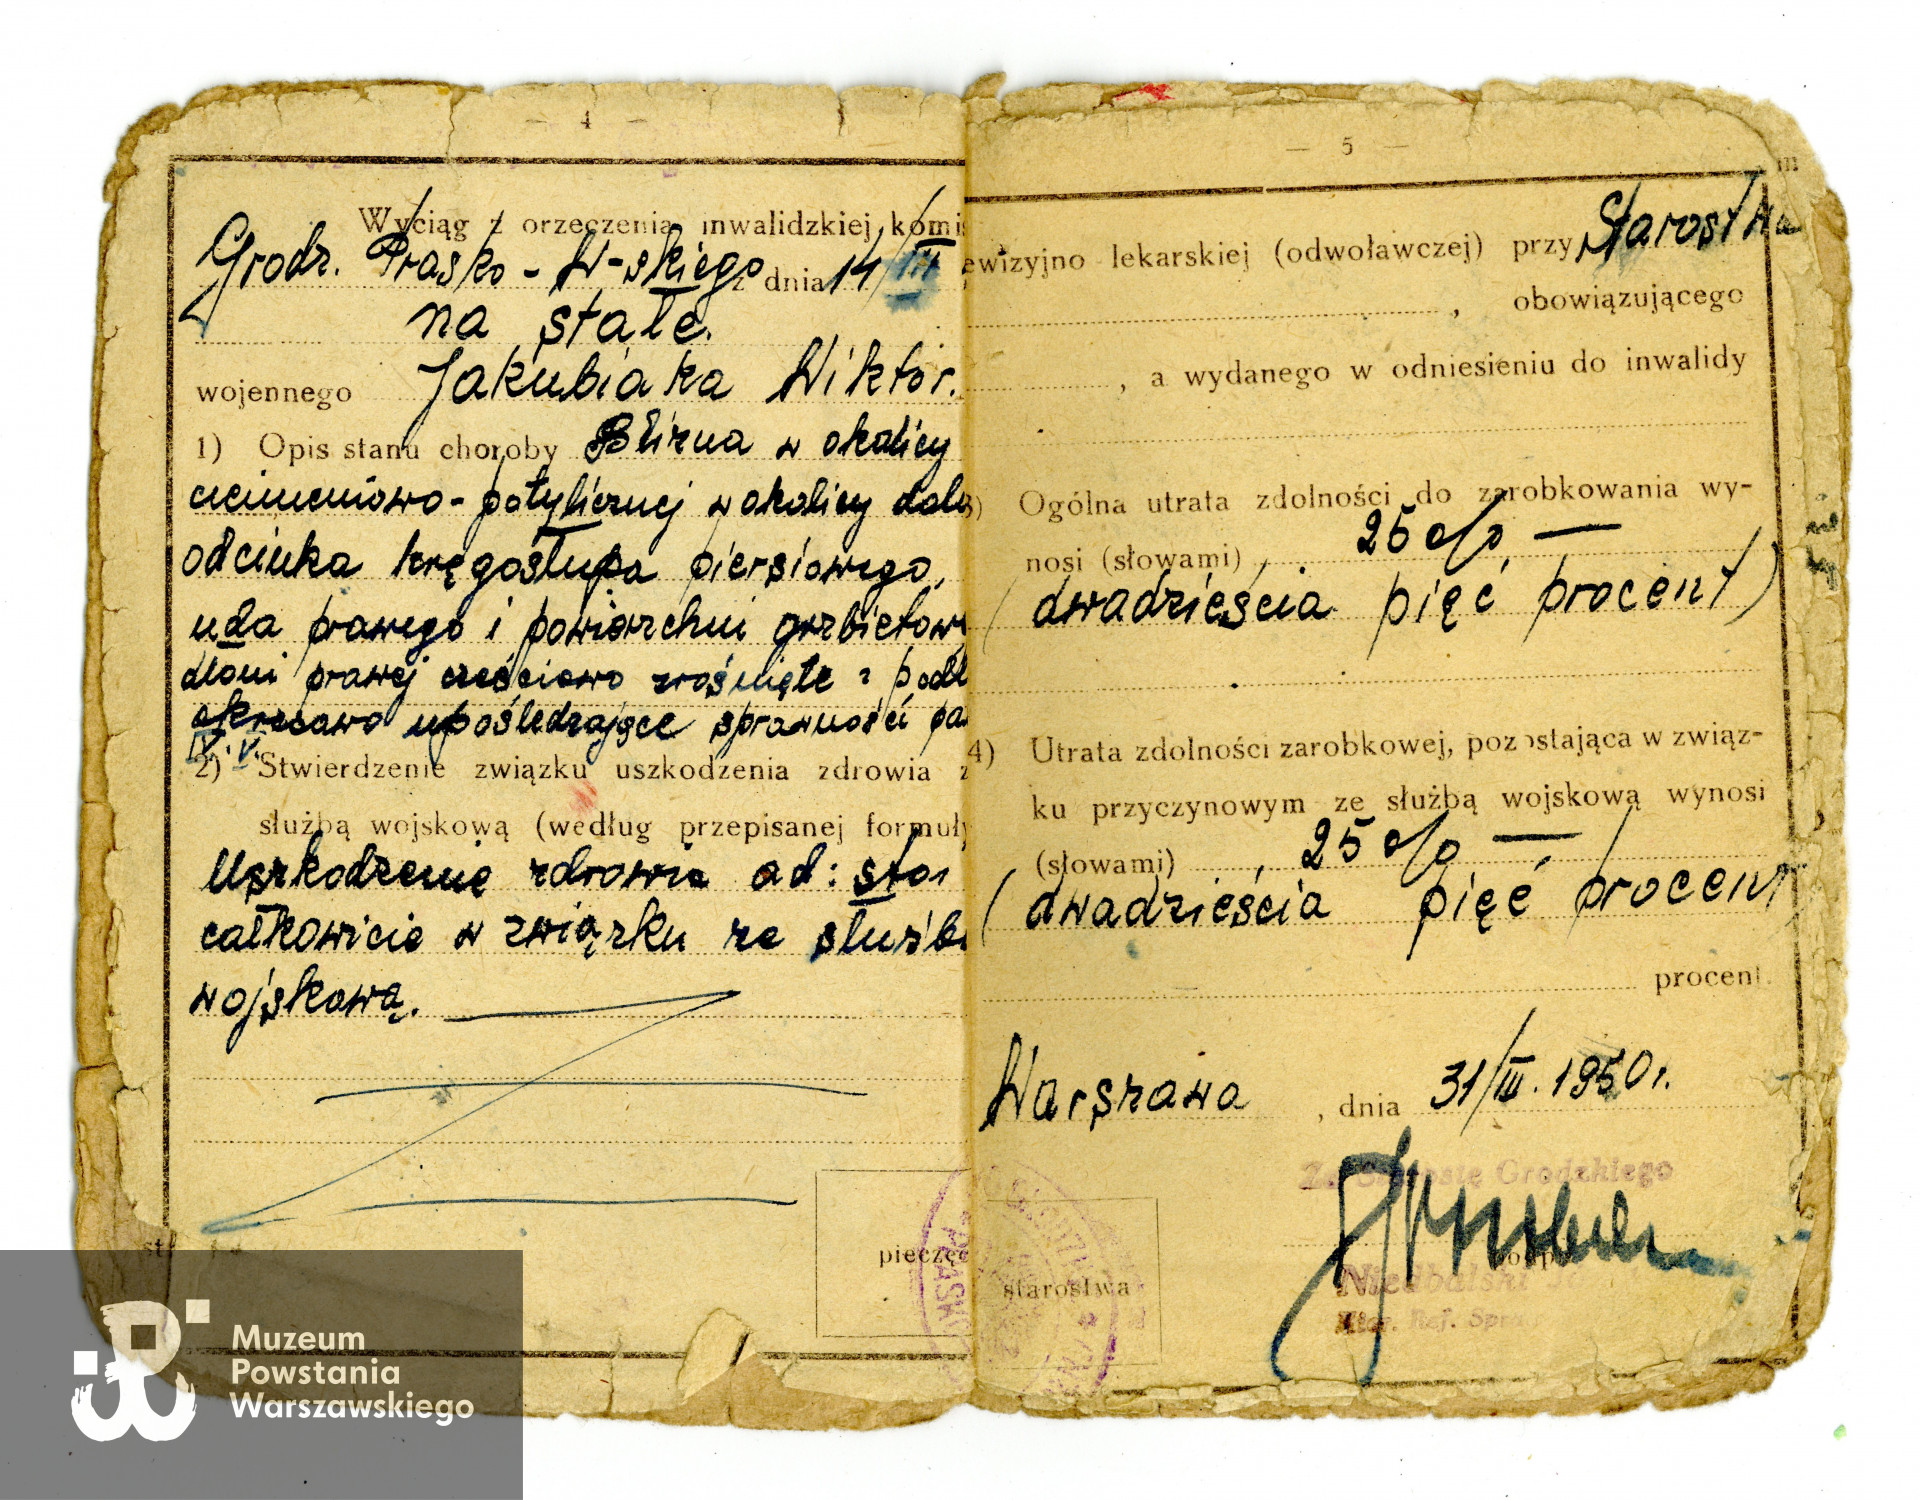 — 4 —
Wyciąg z orzeczenia inwalidzkiej komi
Grodz. Prasko - W-skiego z dnia 14/III
na stałe.
wojennego Jakubiaka Wiktor.
1) Opis stanu choroby Blizna w okolicy
ciemieniowo - potylicznej w okolicy doln
odcinka kręgosłupa piersiowego,
uda prawego i powierzchni grzbietowe
dłoni prawej częściowo zrośnięte z podł
okresowo upośledzające sprawność pa
IV. V.
2) Stwierdzenie związku uszkodzenia zdrowia z
służbą wojskową (według przepisanej formuły
Uszkodzenie zdrowia ad: stoi
całkowicie w związku ze służb
wojskową.
pieczęć
— 5 —
ewizyjno lekarskiej (odwoławczej) przy Starostwa
, obowiązującego
, a wydanego w odniesieniu do inwalidy
3) Ogólna utrata zdolności do zarobkowania wy-
nosi (słowami) 25 o/o —
(dwadzieścia pięć procent)
4) Utrata zdolności zarobkowej, pozostająca w związ-
ku przyczynowym ze służbą wojskową wynosi
(słowami) 25 o/o —
(dwadzieścia pięć procent
procent.
Warszawa, dnia 31/III. 1950r.
Z. Starostę Grodzkiego
podp
starostwa
Niedbalski
Kier. Ref.
Muzeum
Powstania
Warszawskiego